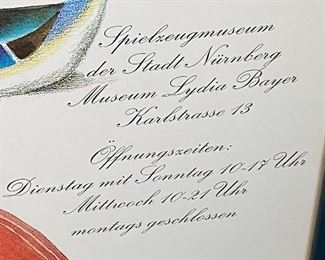 Spielzeugmuseum
der Stadt Nürnberg
Museum Lydia Bayer
Karlstrasse 13
Öffnungszeiten:
Dienstag mit Sonntag 10-17 Uhr
Mittwoch 10-21 Uhr
montags geschlossen